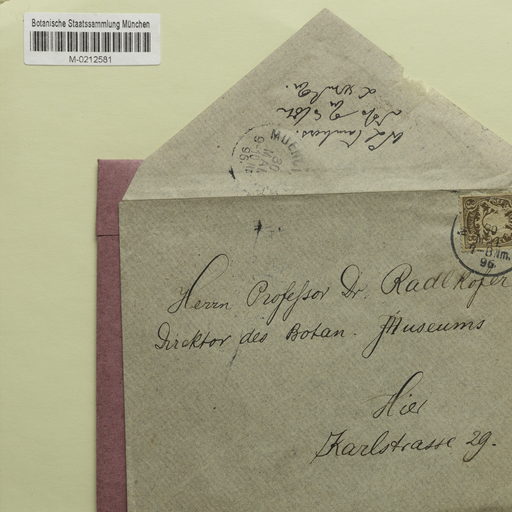 Botanische Staatssammlung München
M-0212581
MUENCH
30
MAI
96
7-8 Nm.
96
Herrn Professor Dr. Radlkofer
Direktor des Botan. Museums
Hier
Karlstrasse 29.